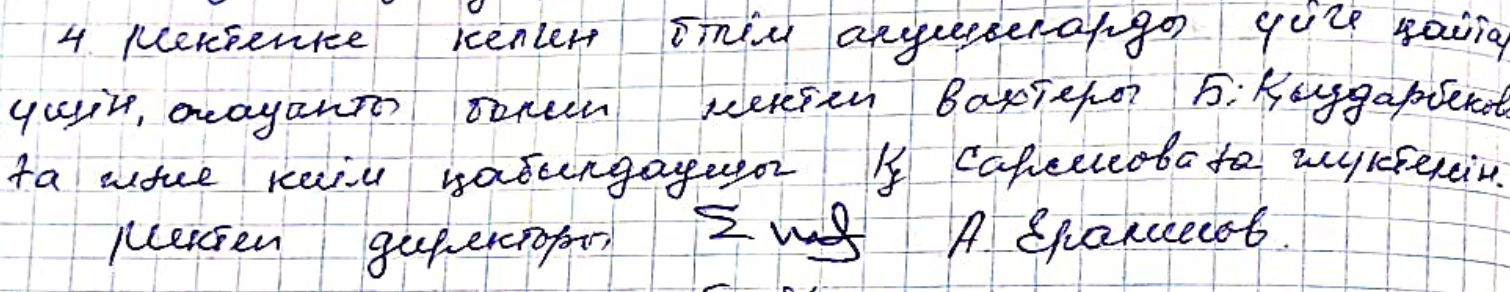 4. Мектепке келген білім алушыларды үйге қайтар
үшін, жауапты болып мектеп вахтері Б. Қыздарбеков
қа және киім қабылдаушы Қ Сарсенова ға жүктелсін.
Мектеп директоры А. Ералинов.